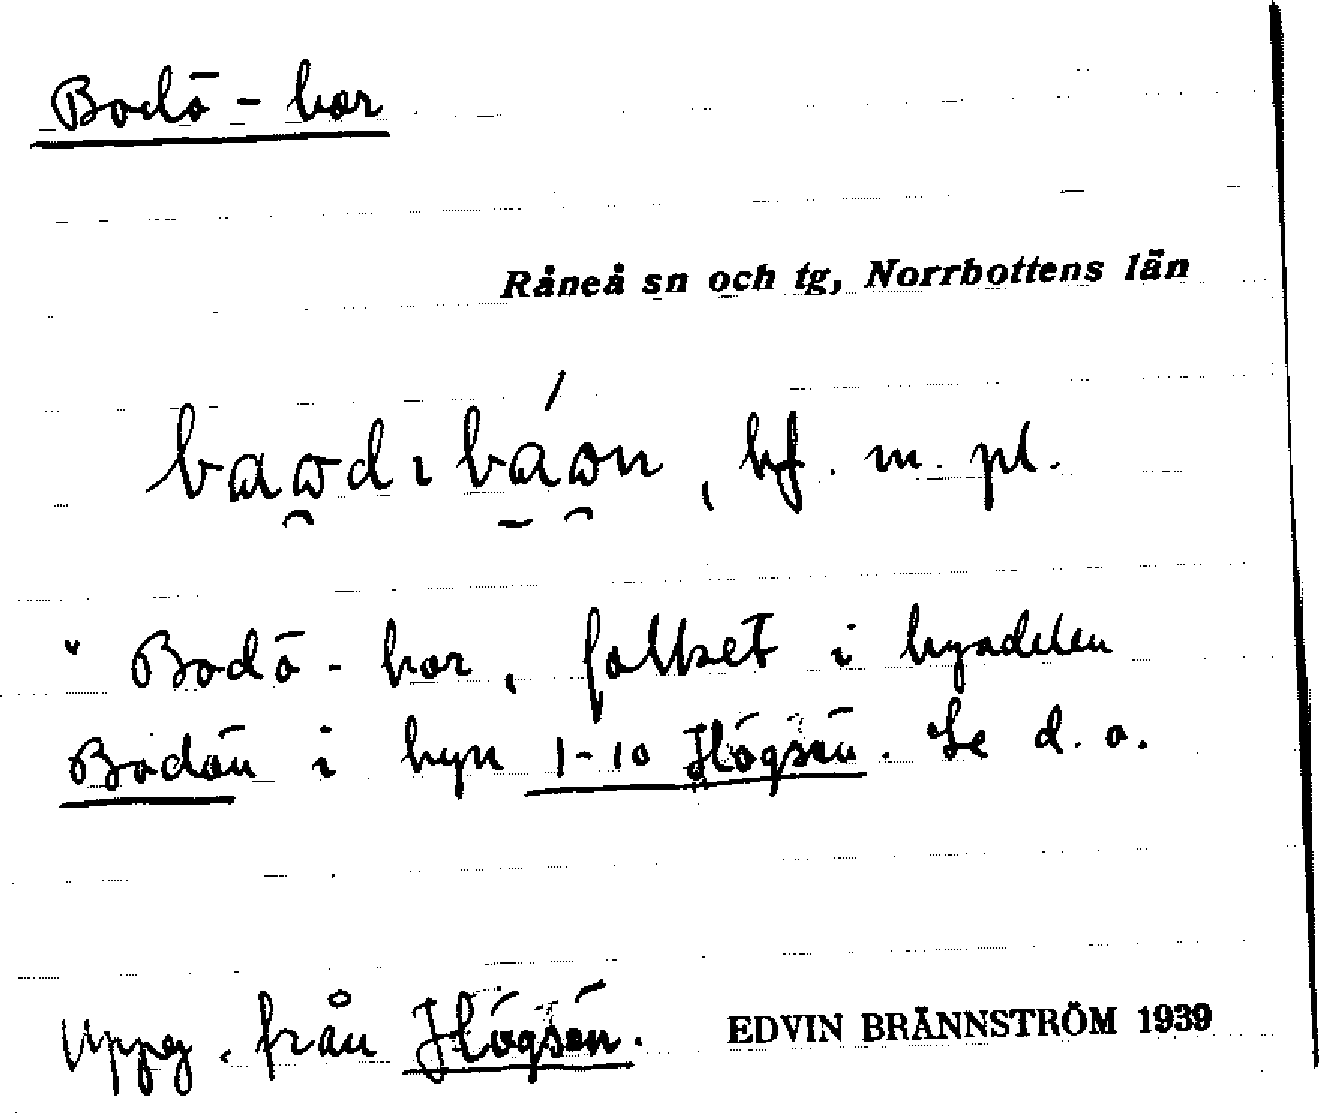 Bodö-bor
Råneå sn och tg, Norrbottens län
bf. m. pl.
"Bodö-bor, folket i bydelen
Bodön i byn 1-10 Högsön. Se d. o.
Uppg. från Högsön.
EDVIN BRÄNNSTRÖM 1939